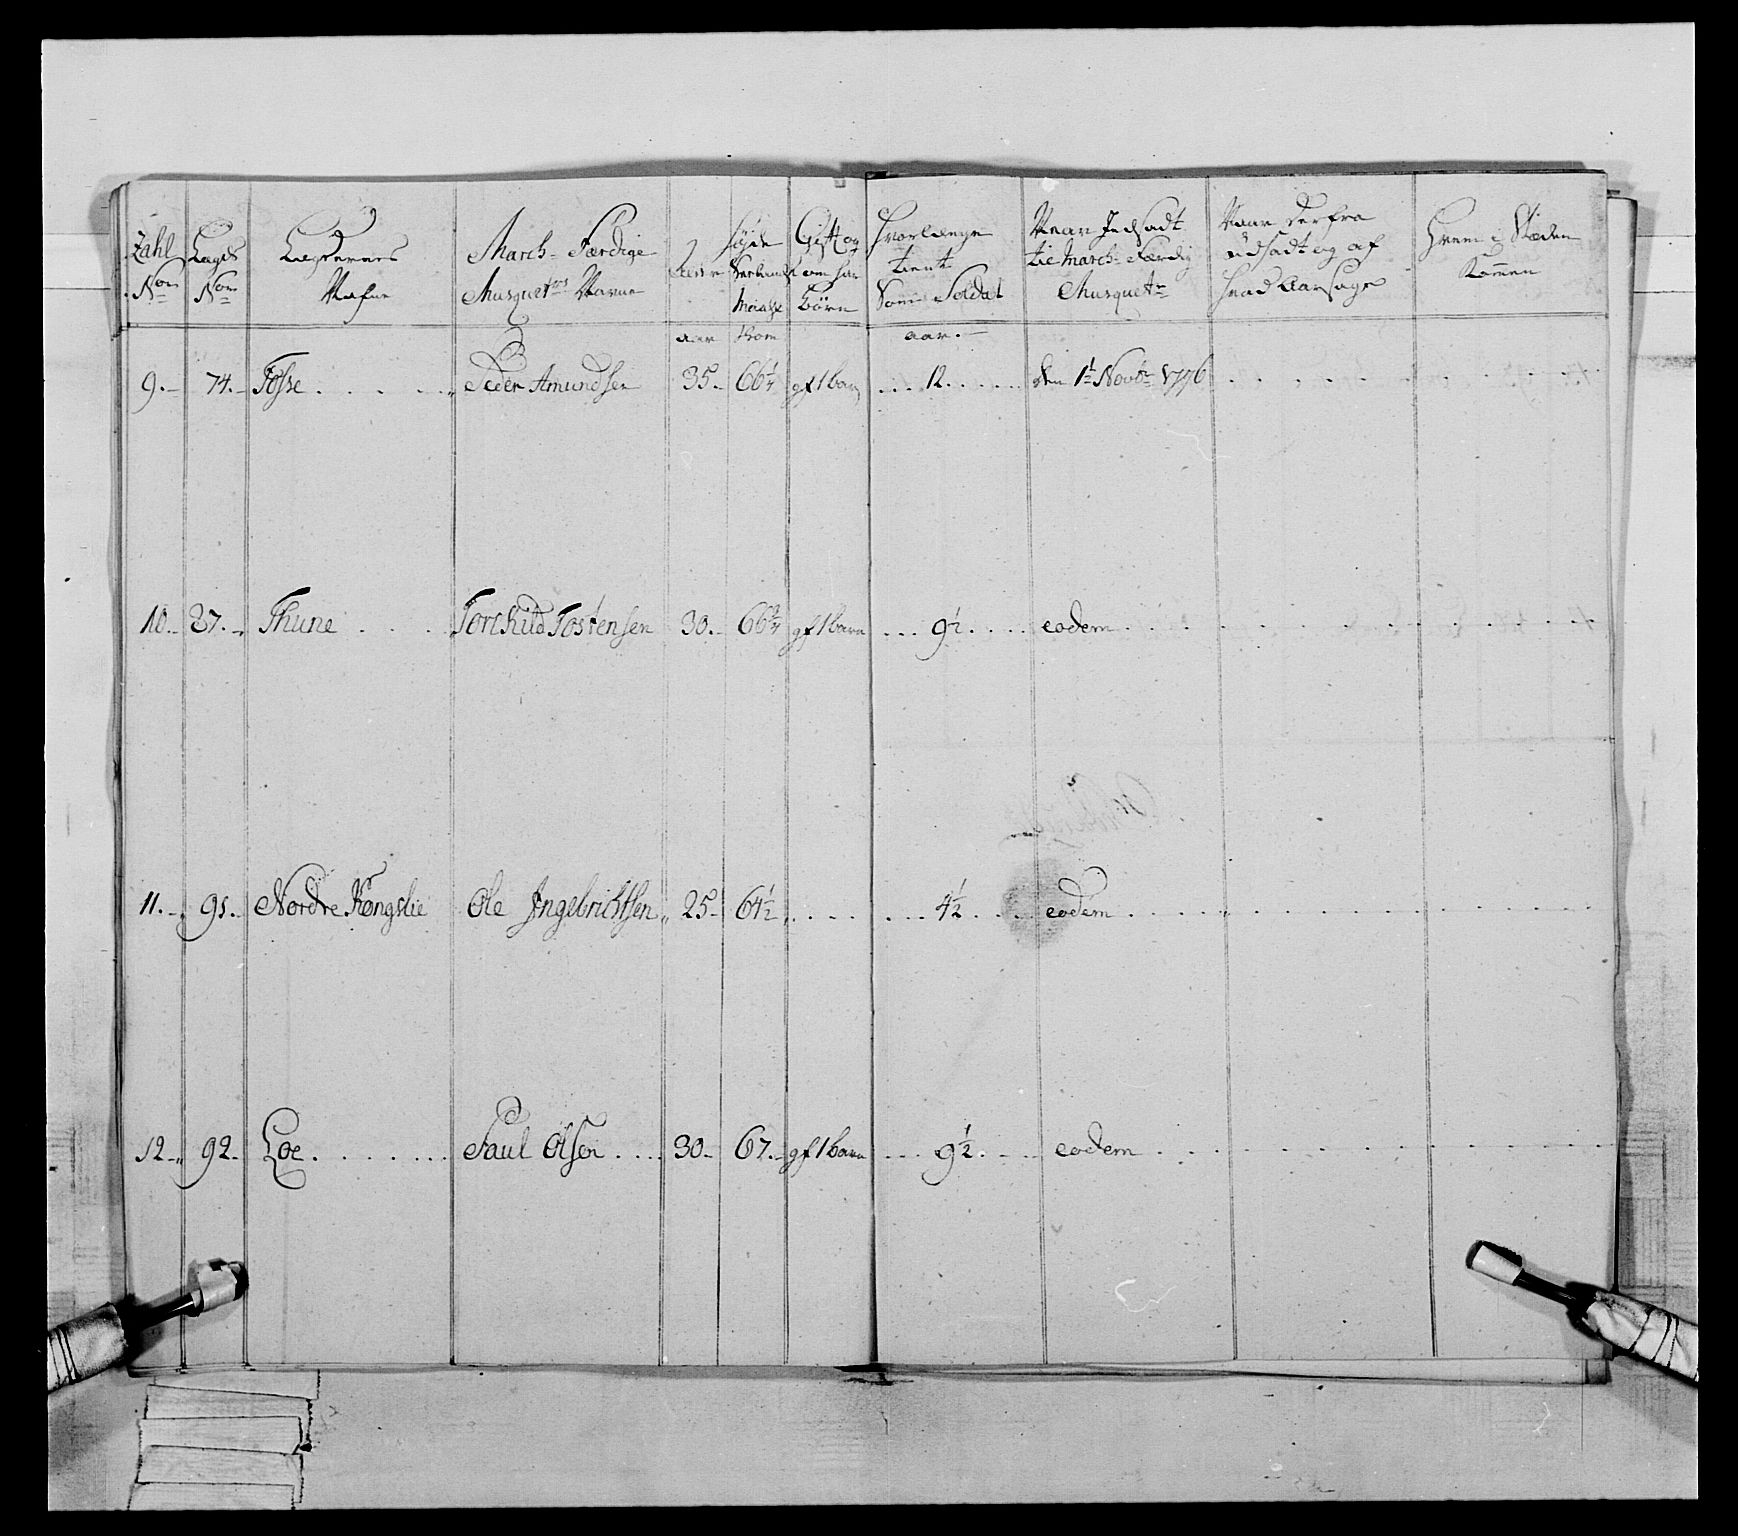 Zahl Nom
Lægds Nom
Lægdernes Nafne
March-Færdige Musquetrs Navne
Høyde
Gift og om har Børn
Hvorlænge tient Som Soldat
Naar Indsadt til March-Færdig Musquetr
Naar derfra udsadt og af hvad Aarsage
Hvem i Stæden kommen
aar tom aar.
9. 74. Fosse Peder Amundsen 35. 66¼ gf 1 barn 12. den 1te Novbr 1776
10. 37. Thune Torchild Tostensen 30. 66¾ gf 1 barn 9½ eodem
11. 91. Nordre Kongslie Ole Ingebrichtsen 25 64½ 4½ eodem
12. 92. Loe Paul Olsen 30 67. gf 1 barn 9½ eodem